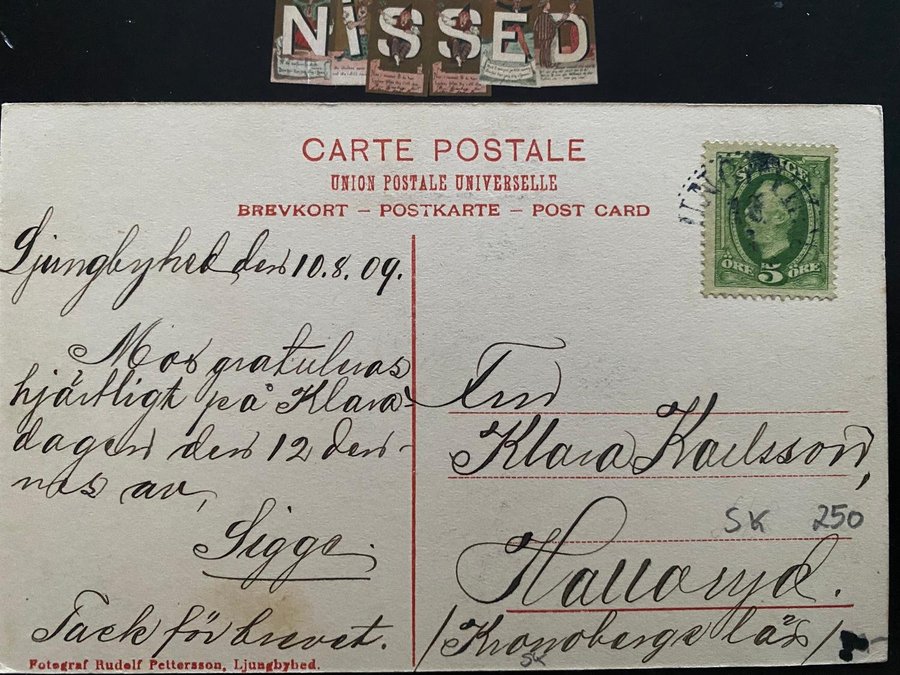 NiSSED
CARTE POSTALE
UNION POSTALE UNIVERSELLE
BREVKORT – POSTKARTE – POST CARD
SVERIGE
ÖRE 5 ÖRE
Ljungbyhed den 10.8.09.
Mor gratuleras
hjärtligt på Klara-
dagen den 12 den-
nes av,
Sigge.
Tack för brevet.
Fru
Klara Karlsson,
SK 250
Hallaryd.
/Kronobergs län/
SK
Fotograf Rudolf Pettersson, Ljungbyhed.